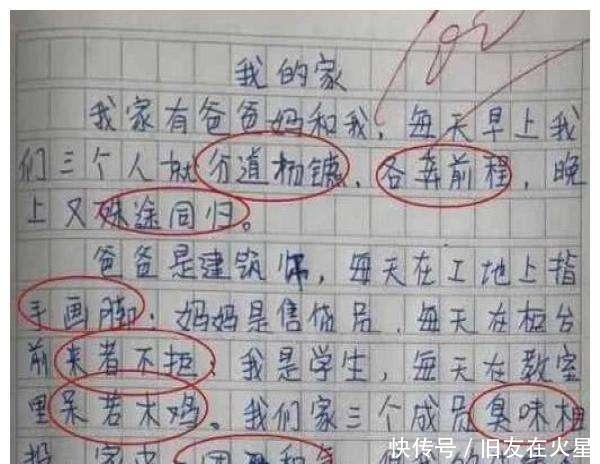 我的家
我家有爸爸妈和我，每天早上我
们三个人就分道杨镳，各奔前程，晚
上又殊途同归。
爸爸是建筑师，每天在工地上指
手画脚；妈妈是售货员，每天在柜台
前来者不拒；我是学生，每天在教室
里呆若木鸡。我们家三个成员臭味相
快传号/旧友在火星